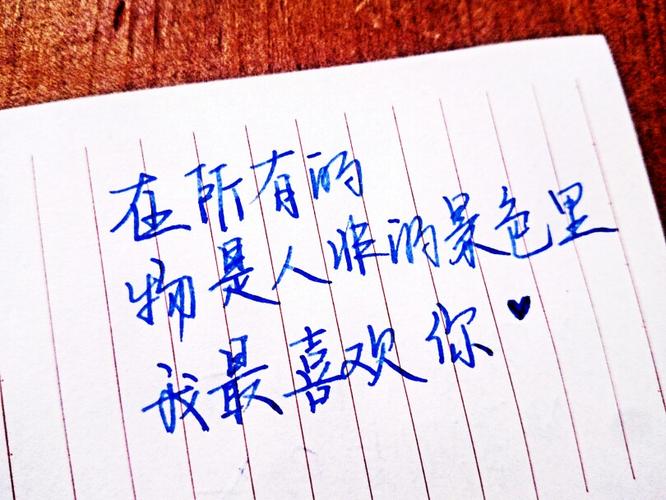 在所有的
物是人非的景色里
我最喜欢你♥